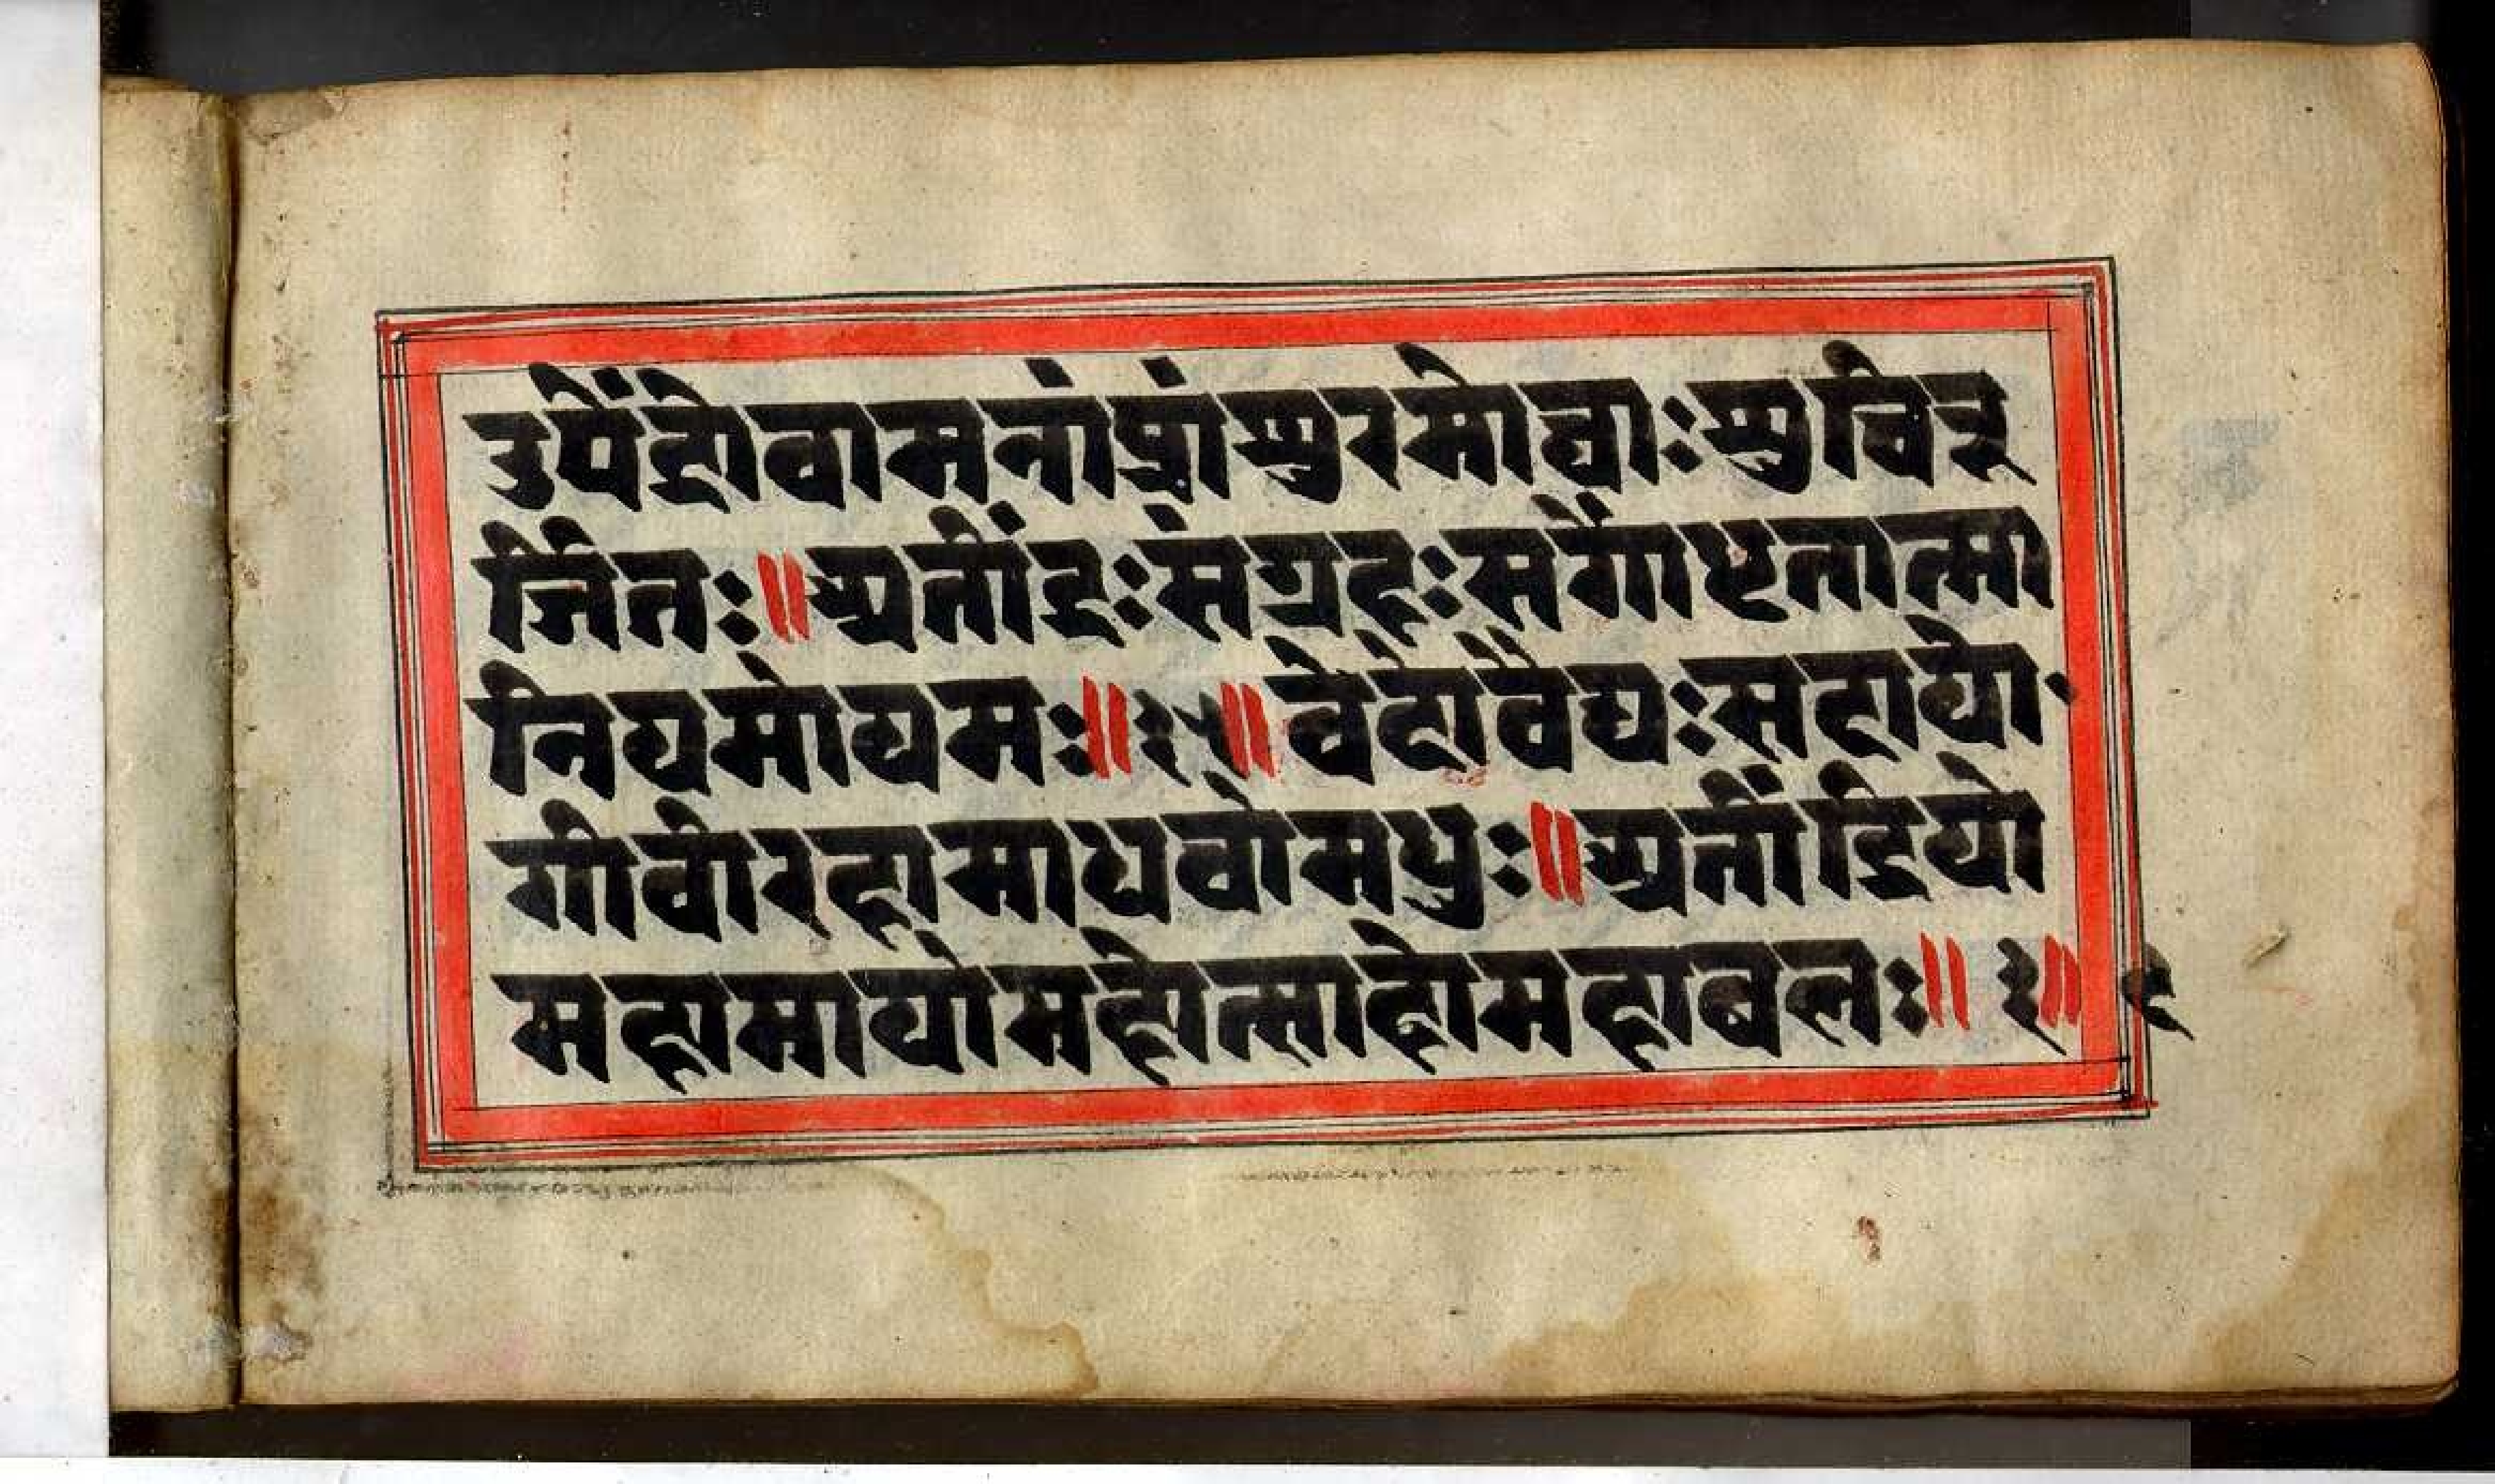 उपेंद्रोवामनांप्रांसुरमोघाः सुचिरू
र्जितः॥ अतींद्रः संग्रहः सर्गोधृतात्मा
नियमोयमः॥३५॥ वेदोवैद्यः सदायो
गीवीरहामाधवोमधुः॥ अतींद्रियो
महामायोमहोत्साहोमहाबलः॥ ३॥ ६